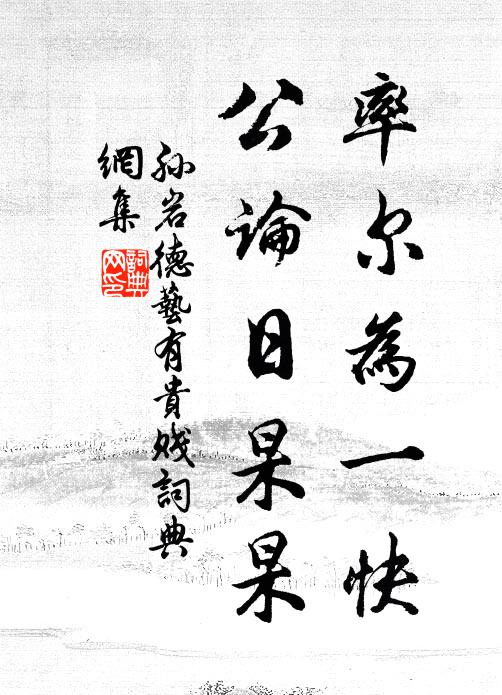 率尔為一快
公論日杲杲
孙岩德藝有貴賎詞典
網集
詞典
网印